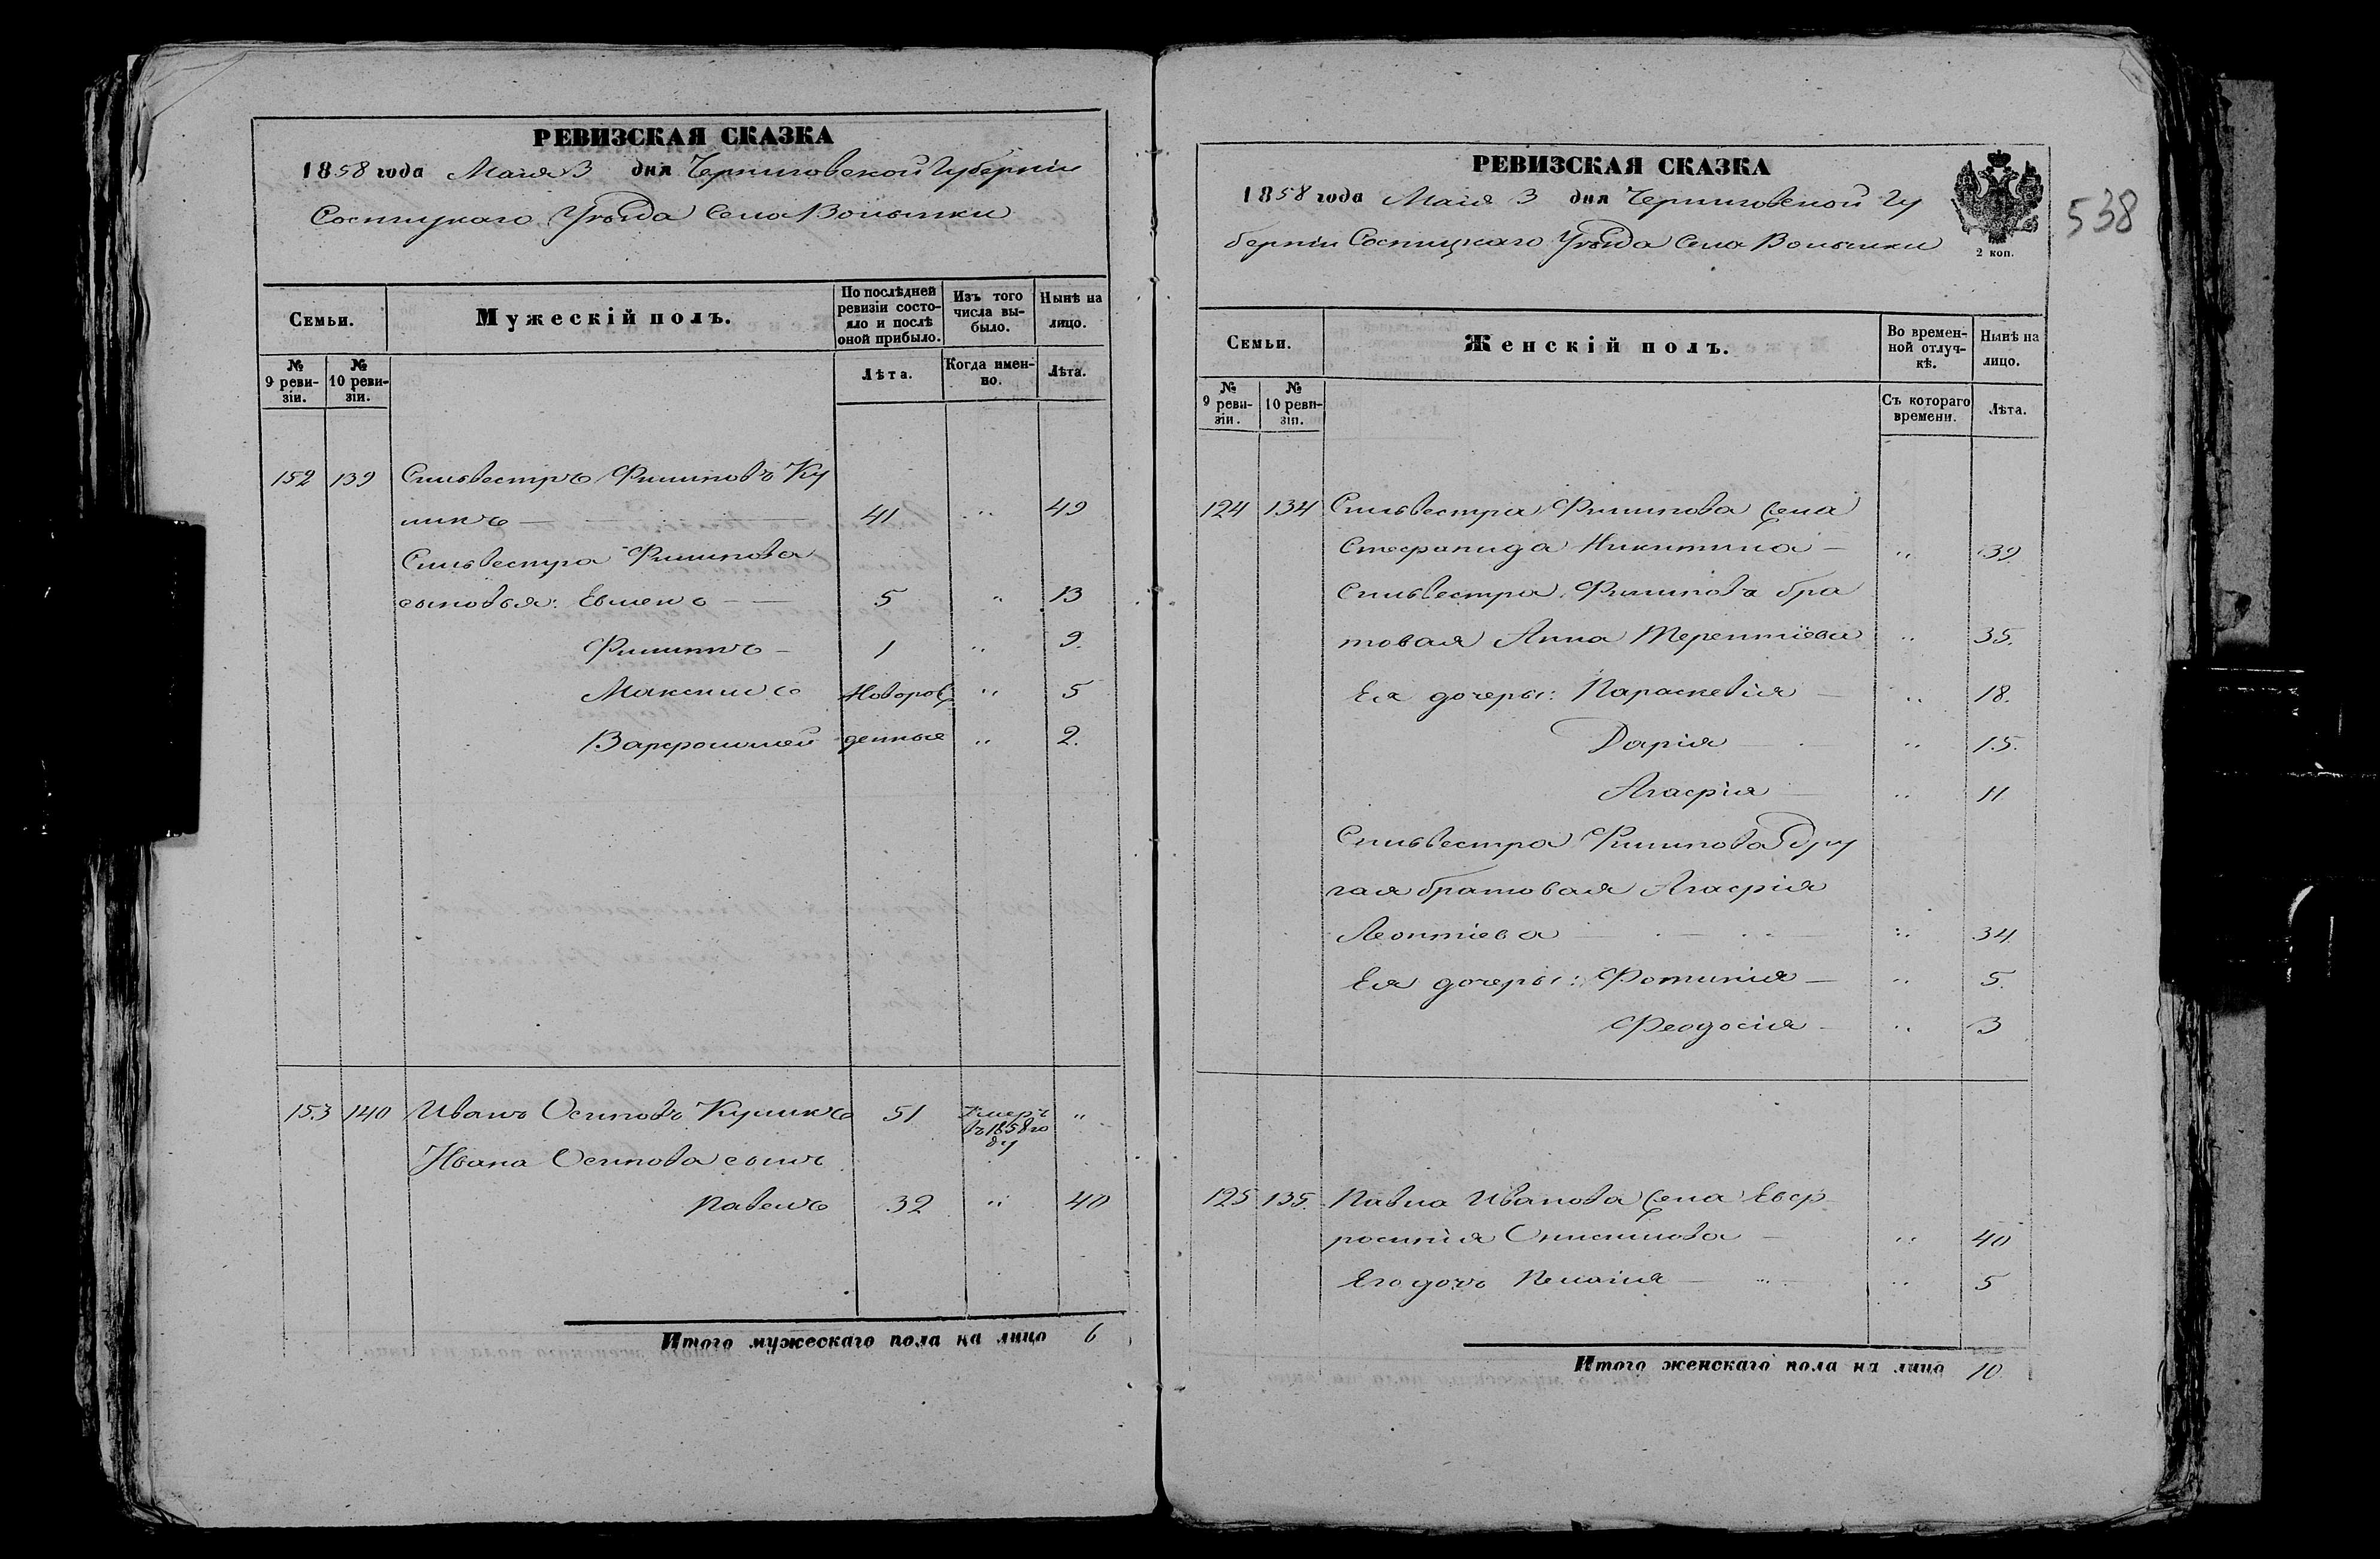 РЕВИЗСКАЯ СКАЗКА
1858 года Мая 3 дня Черниговской Губерніи
Сосницкаго Уѣзда Села Волынки
Семьи.
Мужескій полъ.
По послѣдней ревизіи состояло и послѣ оной прибыло.
Изъ того числа выбыло.
Нынѣ на лицо.
№ 9 ревизіи.
№ 10 ревизіи.
Лѣта.
Когда именно.
Лѣта.
152 139 Сильвестръ Филиповъ Ку
ликъ — 41 " 49
Сильвестра Филипова
сыновья: Евменъ — 5 " 13
Филипъ — 1 " 9.
Максимъ Новорож " 5
Варфоломей денные " 2.
153 140 Иванъ Осиповъ Куликъ 51 Умеръ въ 1858 году "
Ивана Осипова сынъ
Павелъ 32 " 40
Итого мужескаго пола на лицо 6
РЕВИЗСКАЯ СКАЗКА
1858 года Мая 3 дня Черниговской Гу
берніи Сосницкаго Уѣзда Села Волынки
2 коп.
538
Семьи.
Женскій полъ.
Во временной отлучкѣ.
Нынѣ на лицо.
№ 9 ревизіи.
№ 10 ревизіи.
Съ котораго времени.
Лѣта.
124 134 Сильвестра Филипова жена
Стефанида Никитина — " 39.
Сильвестра Филипова бра
товая Анна Терентіева " 35.
Ея дочеры: Параскевія — " 18.
Дарія — " 15.
Агафія — " 11.
Сильвестра Филипова дру
гая братовая Агафія
Леонтіева — " 34
Ея дочеры: Фотинія — " 5.
Феодосія — " 3
125 135. Павла Иванова жена Евф
росинія Онисимова — " 40
Его дочь Пелагія — " 5
Итого женскаго пола на лицо 10.